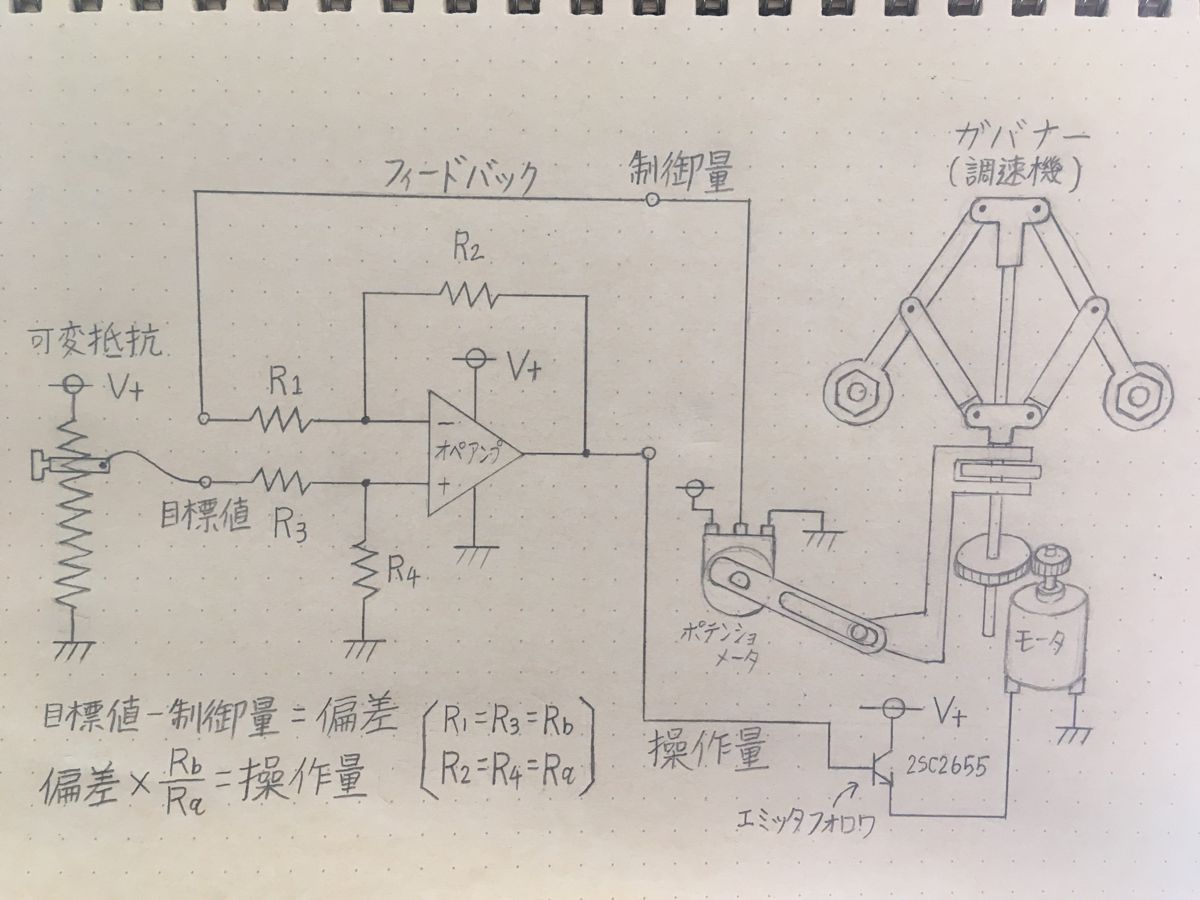 ガバナー
(調速機)
フィードバック
制御量
R2
可変抵抗
V+
R1
V+
−
オペアンプ
+
目標値
R3
R4
ポテンショ
メータ
モータ
目標値−制御量=偏差
偏差×Rb/Ra=操作量
R1=R3=Rb
R2=R4=Ra
操作量
V+
2SC2655
エミッタフォロワ